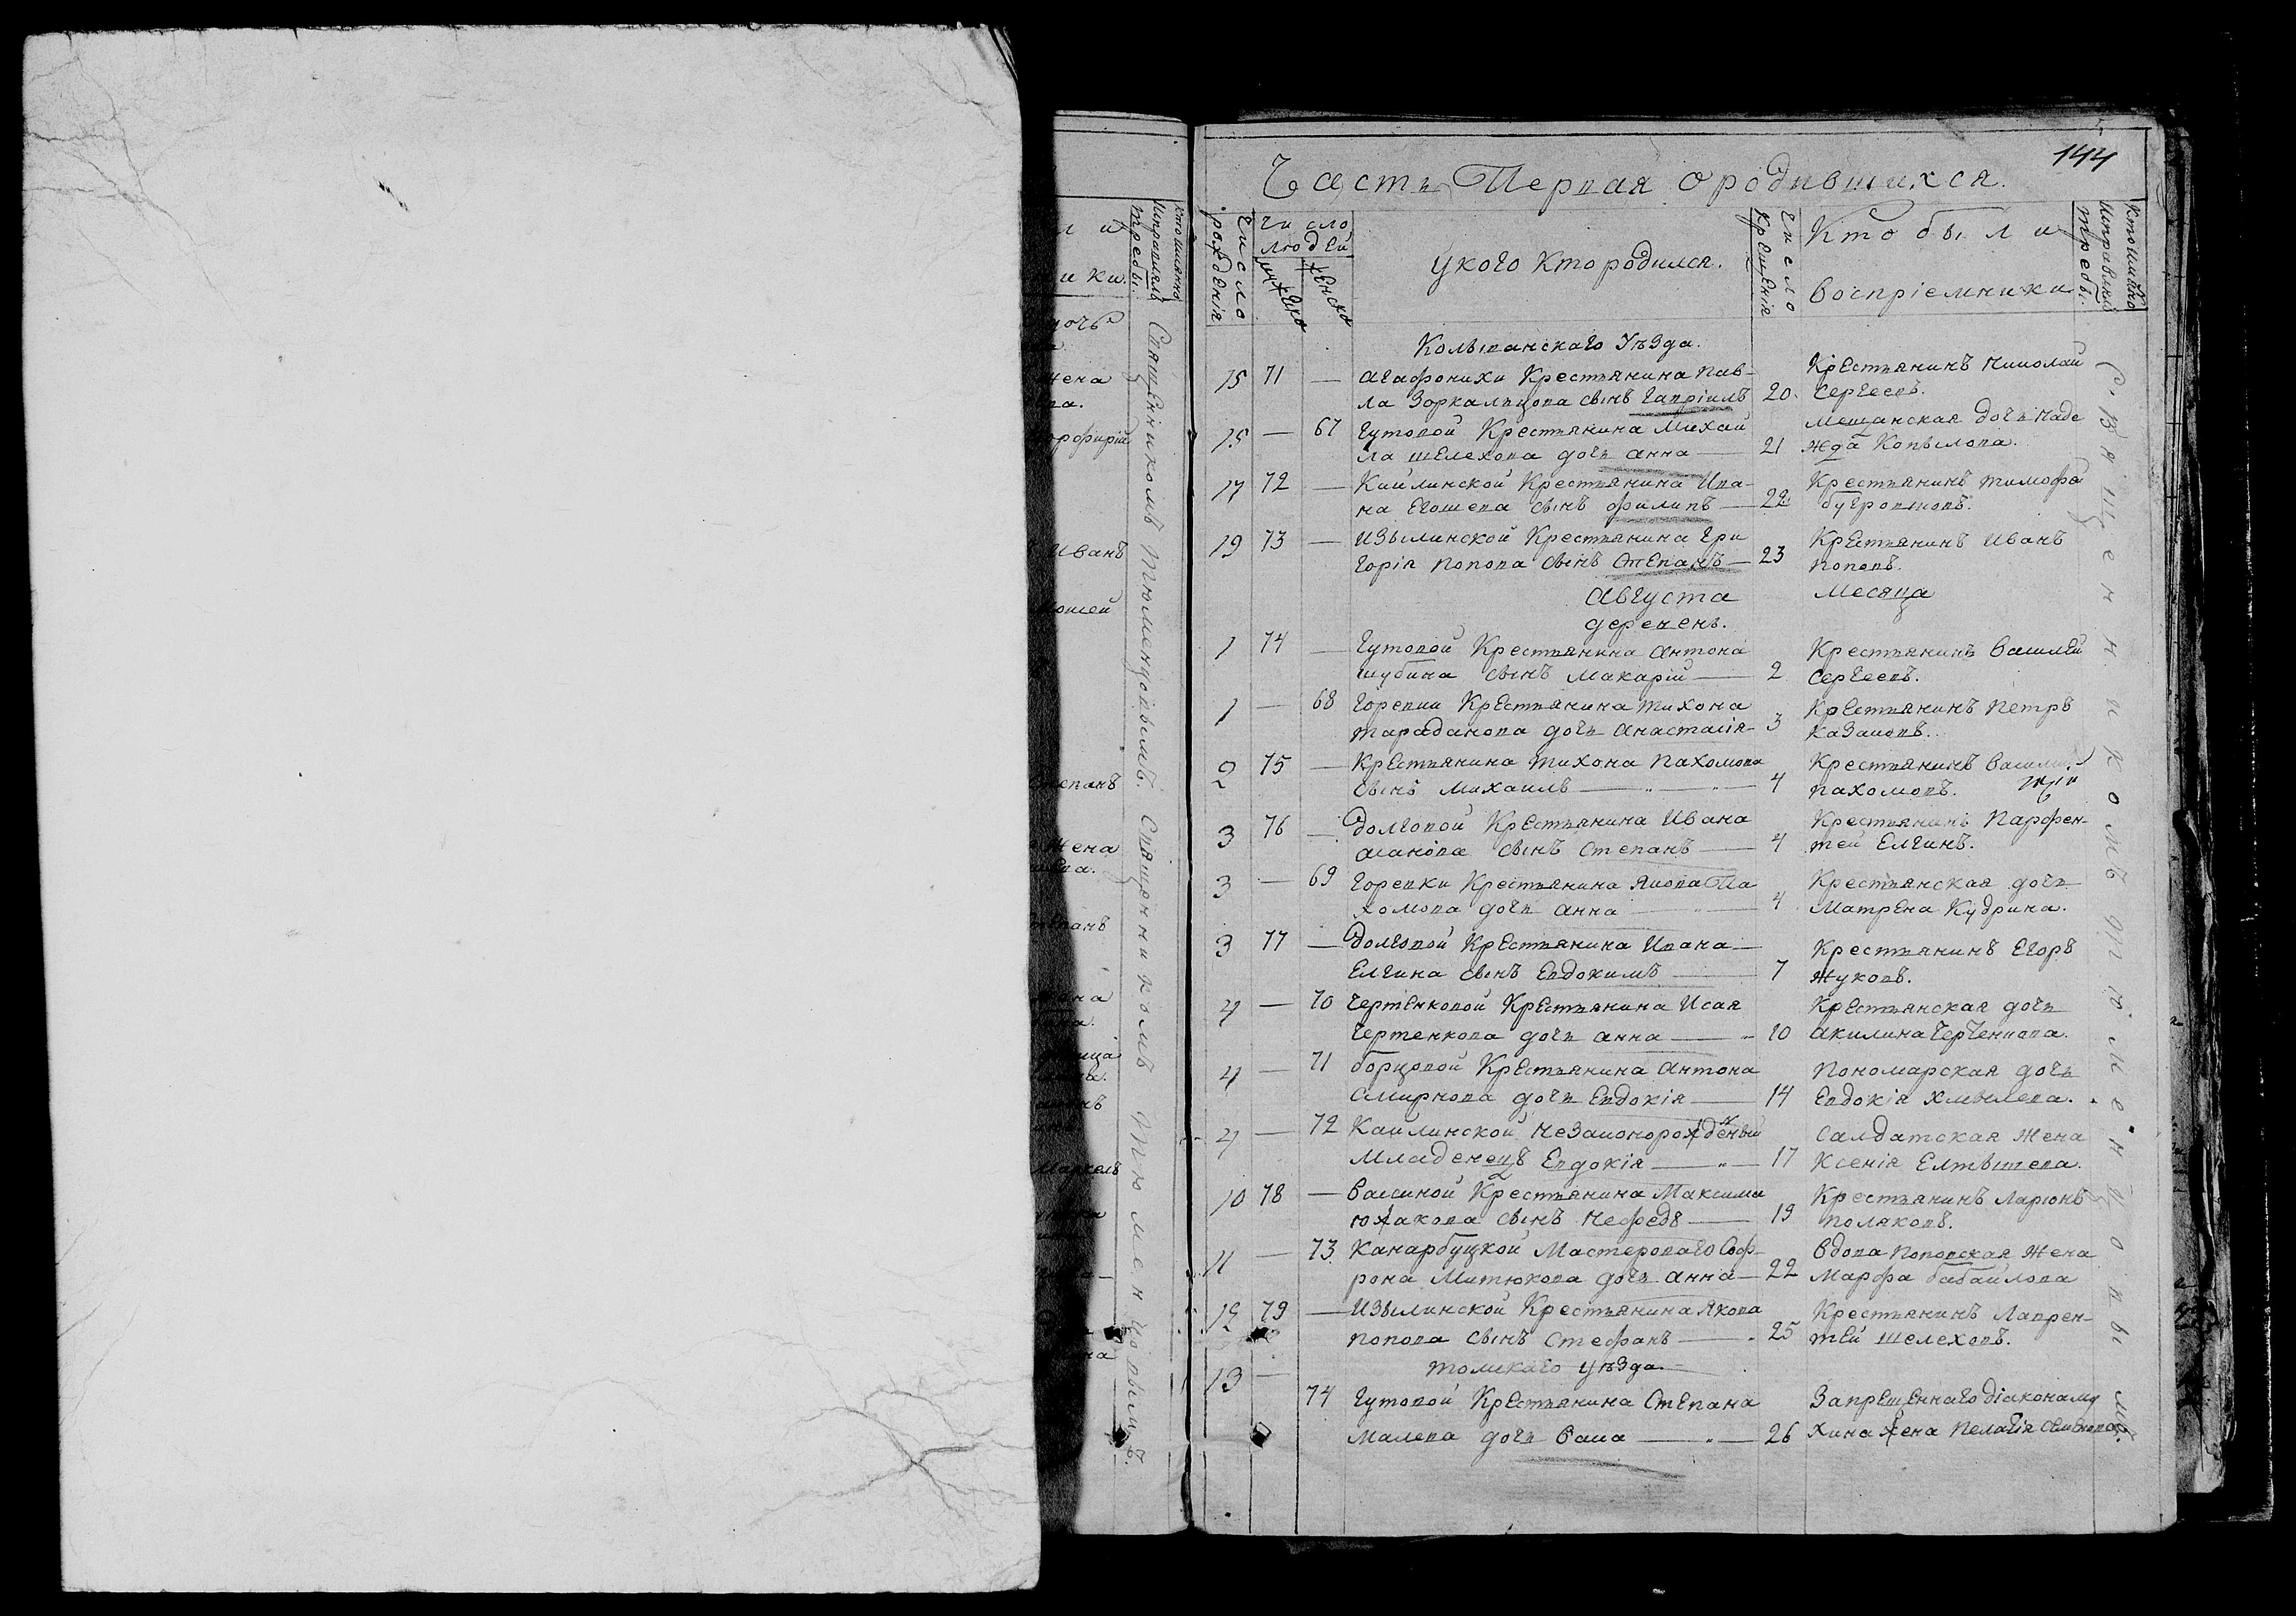 144
Часть Первая о родившихся.
Число рожденія
Число людей
мужеска
женска
у кого кто родился.
Число крещенія
Кто были
воспріемники
Колыванскаго Уѣзда.
15 71 — Агафонихи Крестьянина Пав-
ла Зоркальцова сынъ Гавріилъ 20.
Крестьянинъ Николай
Сергеевъ.
15 — 67 Гутовой Крестьянина Михаи
ла Шелехова дочь Анна — 21
Мещанская дочь Наде
жда Копылова.
17 72 — Кайлинской Крестьянина Ива-
на Егошева сынъ Филипъ — 22
Крестьянинъ Тимофе
19 73 — Изылинской Крестьянина Гри
горія Попова сынъ Степанъ — 23
Крестьянинъ Иванъ
Поповъ.
Августа Месяца
деревень.
1 74 — Гутовой Крестьянина Антона
Шубина сынъ Макарій — 2
Крестьянинъ Василей
Сергеевъ.
1 — 68 Горевки Крестьянина Тихона
Тараданова дочь Анастасія — 3
Крестьянинъ Петръ
Казаковъ.
2 75 — Крестьянина Тихона Пахомова
сынъ Михаилъ — „ — „ — 4
Крестьянинъ
Пахомовъ.
3 76 — Долговой Крестьянина Ивана
сынъ Степанъ — 4
Крестьянинъ Парфен-
тей Елгинъ.
3 — 69 Горевки Крестьянина Якова Па
хомова дочь Анна — „ — 4
Крестьянская дочь
Матрена Кудрина.
3 77 — Долговой Крестьянина Ивана —
Елгина сынъ Евдокимъ — 7
Крестьянинъ Егоръ
Жуковъ.
4 — 70 Чертенковой Крестьянина Исая
Чертенкова дочь Анна — „ 10
Крестьянская дочь
Акилина
4 — 71 Борцовой Крестьянина Антона
Смирнова дочь Евдокія — 14
Пономарская дочь
Евдокія Хмылева.
4 — 72 Кайлинской незаконорожденный
Младенецъ Евдокія — „ — 17
Салдатская жена
Ксенія Елтышева.
10 78 — Крестьянина Максима
Южакова сынъ Нефедъ — 19
Крестьянинъ Ларіонъ
Поляковъ.
11 — 73 Канарбуцкой Мастероваго Соф-
рона Митюкова дочь Анна — 22
Вдова Поповская жена
Марфа Бабайлова
79 — Изылинской Крестьянина Якова
Попова сынъ Стефанъ — 25
Крестьянинъ Лаврен-
тей Шелеховъ.
Томскаго Уѣзда.
13 — 74 Гутовой Крестьянина Степана
Малева дочь Васса — „ — 26
Запрещеннаго діакона
жена Пелагія
Священникомъ Тюменцовымъ.
Священникомъ Тюменцовымъ. Священникомъ Тюменцовымъ.